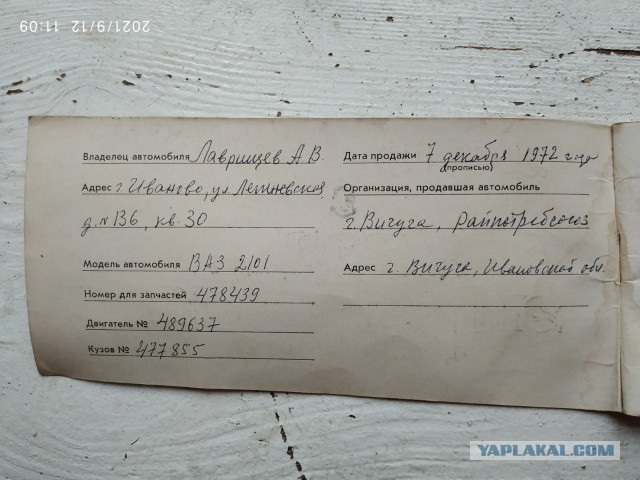 2021/9/12 11:09
Владелец автомобиля Лаврищев А В.
Адрес г. Иваново, ул
д. № 136, кв. 30
Модель автомобиля ВАЗ 2101
Номер для запчастей 478439
Двигатель № 489637
Кузов № 477855
Дата продажи 7 декабря 1972 года
(прописью)
Организация, продавшая автомобиль
г. Вичуга, Райпотребсоюз
Адрес г. Вичуга, Ивановской обл.
YAPLAKAL.COM